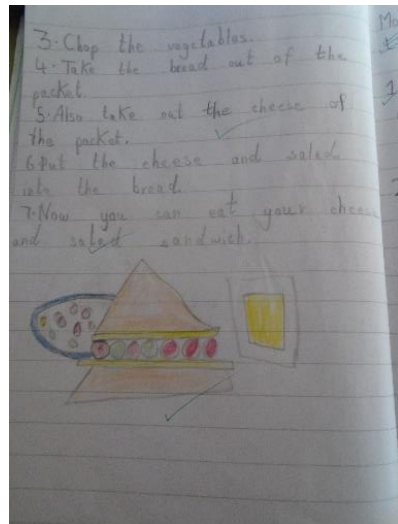 3. Chop the vegetables.
4. Take the bread out of the
packet.
5. Also take out the cheese of
the packet.
6. Put the cheese and salad
into the bread.
7. Now you can eat your cheese
and salad sandwich.